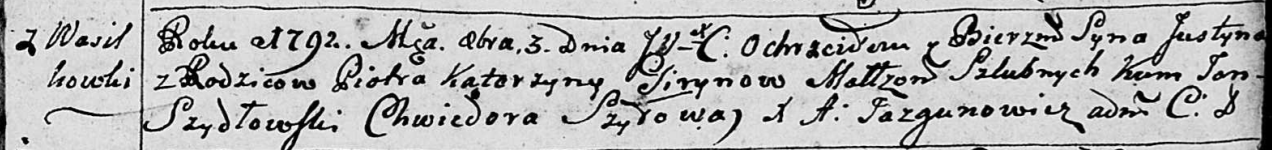 z Wasil
kowki
Roku 1792. Mca. 8bra. 3. Dnia JWXC. Ochrzciłem y Bierzm Syna Justyna
z Rodzicow Piotra Katarzyny Sirynow Małżon Szlubnych kum Jan
Szydłowski Chwiedora Szyrowa) X A: Jazgunowicz adm C: D